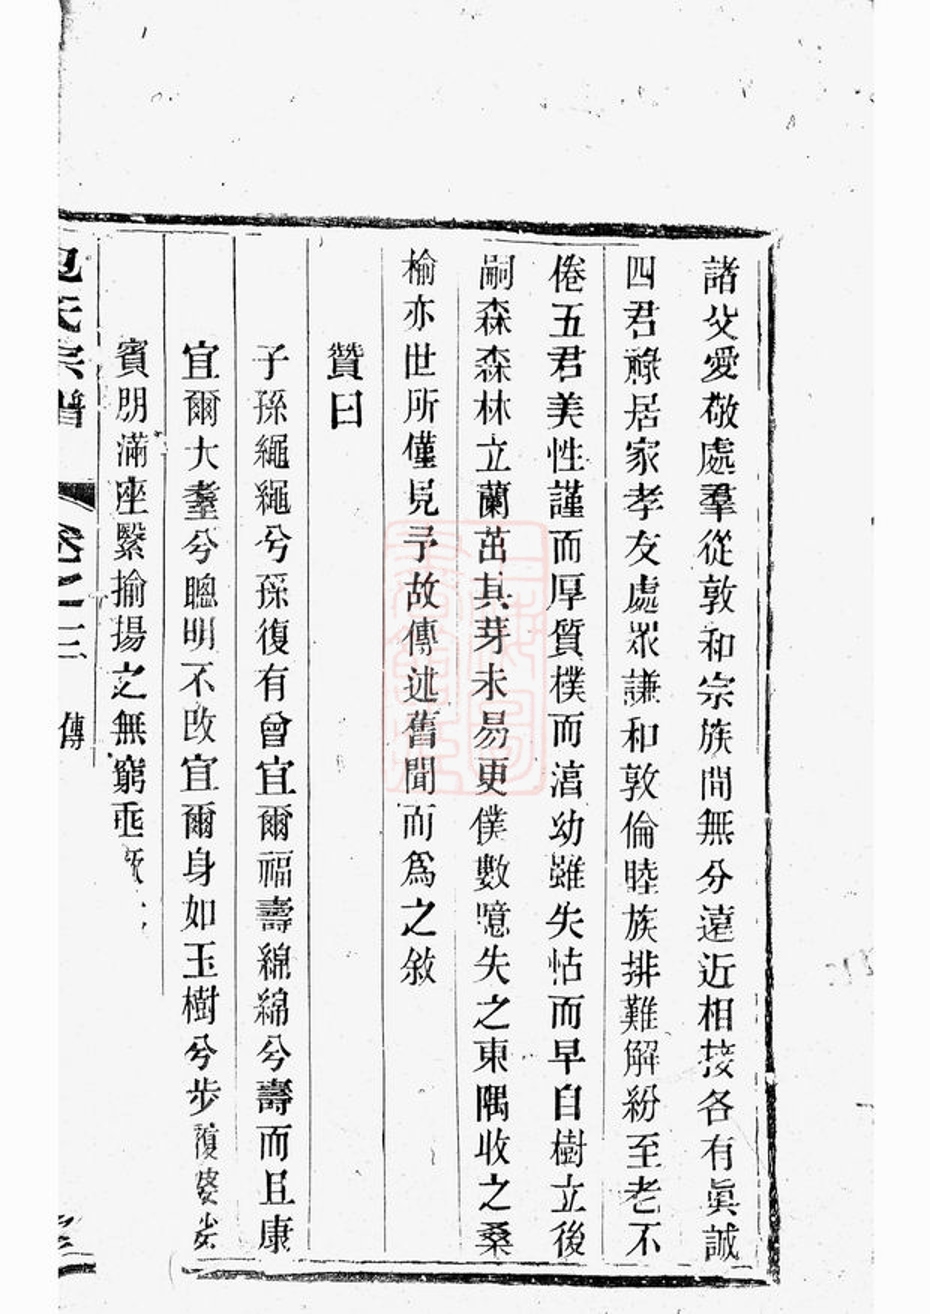 諸父愛敬處羣從敦和宗族間無分遠近相接各有眞誠
四君祿居家孝友處眾謙和敦倫睦族排難解紛至老不
倦五君美性謹而厚質樸而湻幼雖失怙而早自樹立後
嗣森森林立蘭茁其芽未易更僕數噫失之東隅收之桑
榆亦世所僅見予故傳述舊聞而爲之敘
贊曰
子孫繩繩兮孫復有曾宜爾福壽綿綿兮壽而且康
宜爾大耋兮聰明不改宜爾身如玉樹兮步履婆娑
賓朋滿座繄揄揚之無窮垂
包氏宗譜
卷之三
傳